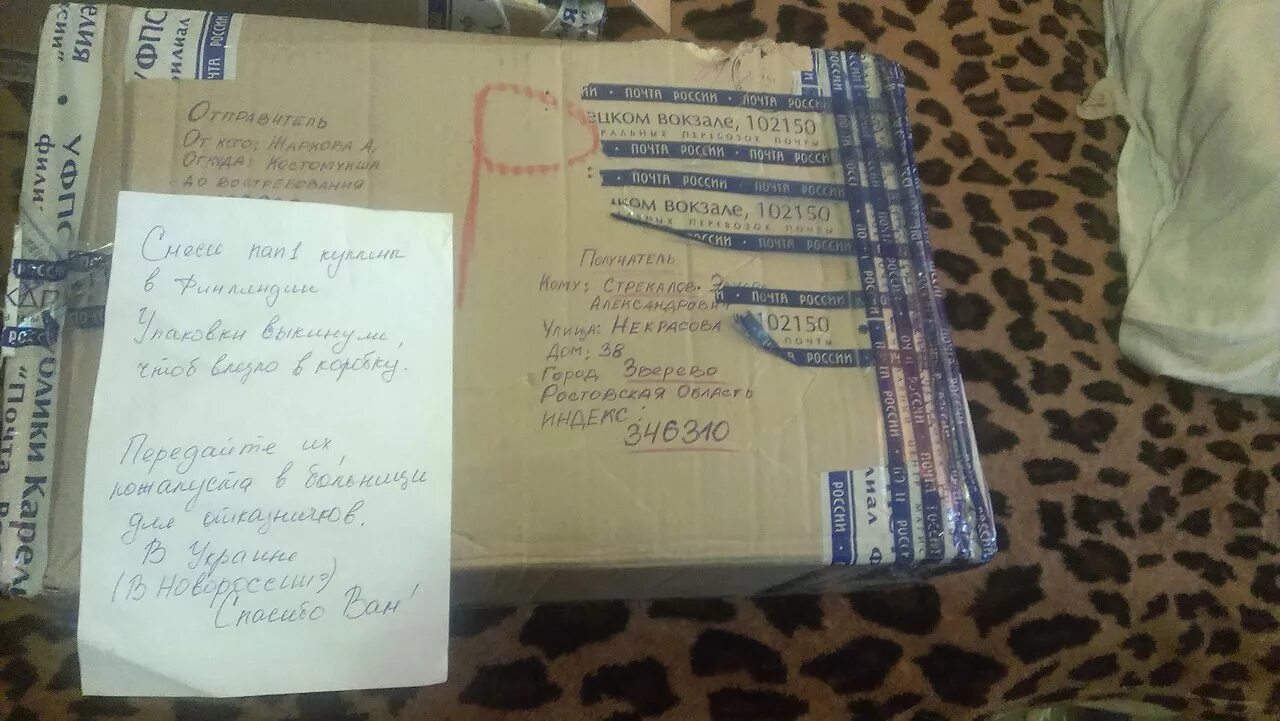 Отправитель
От кого: Жаркова А.
Откуда: Костомукша
до востребования
Смеси нап1 куплины
в Финляндии
Упаковки выкинули,
чтоб влезло в коробку.
Передайте их,
пожалуста в больници
для отказничков.
В Украине
(В Новороссии?)
Спасибо Вам!
Получатель
Кому: Стрекалов
Александрович
Улица: Некрасова
Дом: 38
Город Зверево
Ростовская Область
ИНДЕКС:
346310
Р
ИИ • ПОЧТА РОССИИ • ПОЧТА РОССИ
ецком вокзале, 102150
РАЛЬНЫХ ПЕРЕВОЗОК ПОЧТЫ
ПОЧТА РОССИИ • ПОЧТА РОССИ
ПОЧТА РОССИИ • ПОЧТА РОССИИ
ком вокзале, 102150
ЬНЫХ ПЕРЕВОЗОК ПОЧТЫ
ССИИ • ПОЧТА РОССИИ
ПОЧТА РОССИИ
102150
ПОЧТЫ
ТА РОССИИ
УФПС
филиал
ПОЧТА РОССИИ
РОССИИ
филиал
УФПС
филиа
олики Карел
"Почта